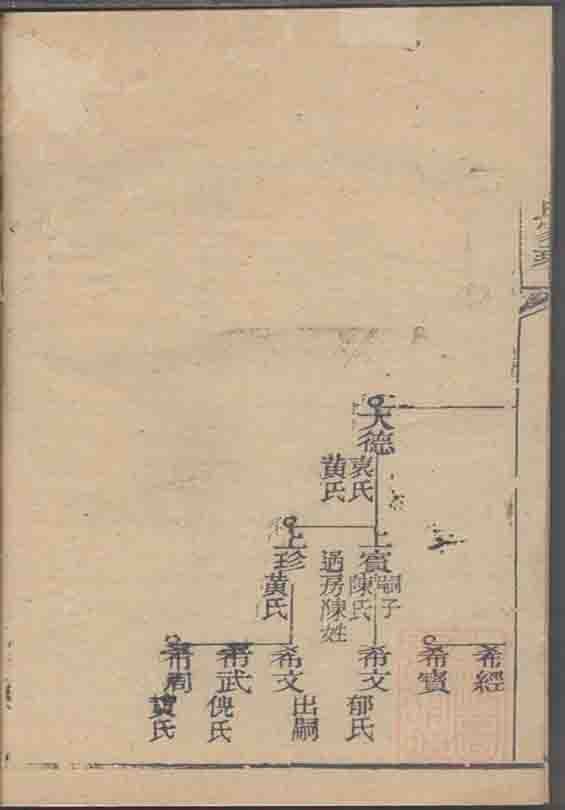 大德
袁氏
黄氏
上賓
嗣子
陳氏
過房陳姓
上珍
黄氏
希經
希寳
希文
郁氏
希文
出嗣
希武
倪氏
希周
氏